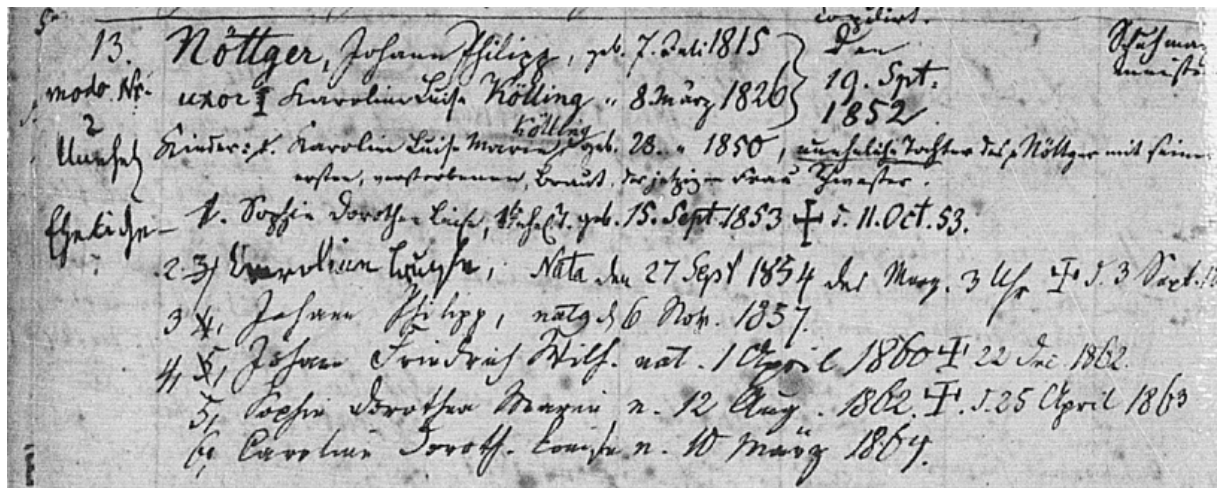 copulirt.
13. Nöttger, Johann Philipp, geb. 7. Juli 1815 den Schuhma-
modo Nr. uxor Karolin Luise Kölling " 8 März 1826 19. Spt. meister
2 1852.
Kölling
Unehel. Kinder: 1. Karolin Luise Marie geb. 28. " 1850, uneheliche Tochter des p Nöttger mit seiner
ersten, verstorbenen, Braut, der jetzigen Frau Schwester.
Eheliche 1. Sophie Dorothee Luise, geb. 15. Sept. 1853 ✝ d. 11. Oct. 53.
2. 3) Karoline Louise, Nata den 27 Sept 1854 des Morg. 3 Uhr ✝ d. 3 Sept.
3 4, Johann Philipp, natg d 6 Nov. 1857.
4, 5, Johann Friedrich Wilh. nat. 1 April 1860 ✝ 22 Dec 1862.
5, Sophie Dorothea Marie n. 12 Aug. 1862. ✝ d. 25 April 1863
6, Caroline Doroth. Louise n. 10 März 1864.